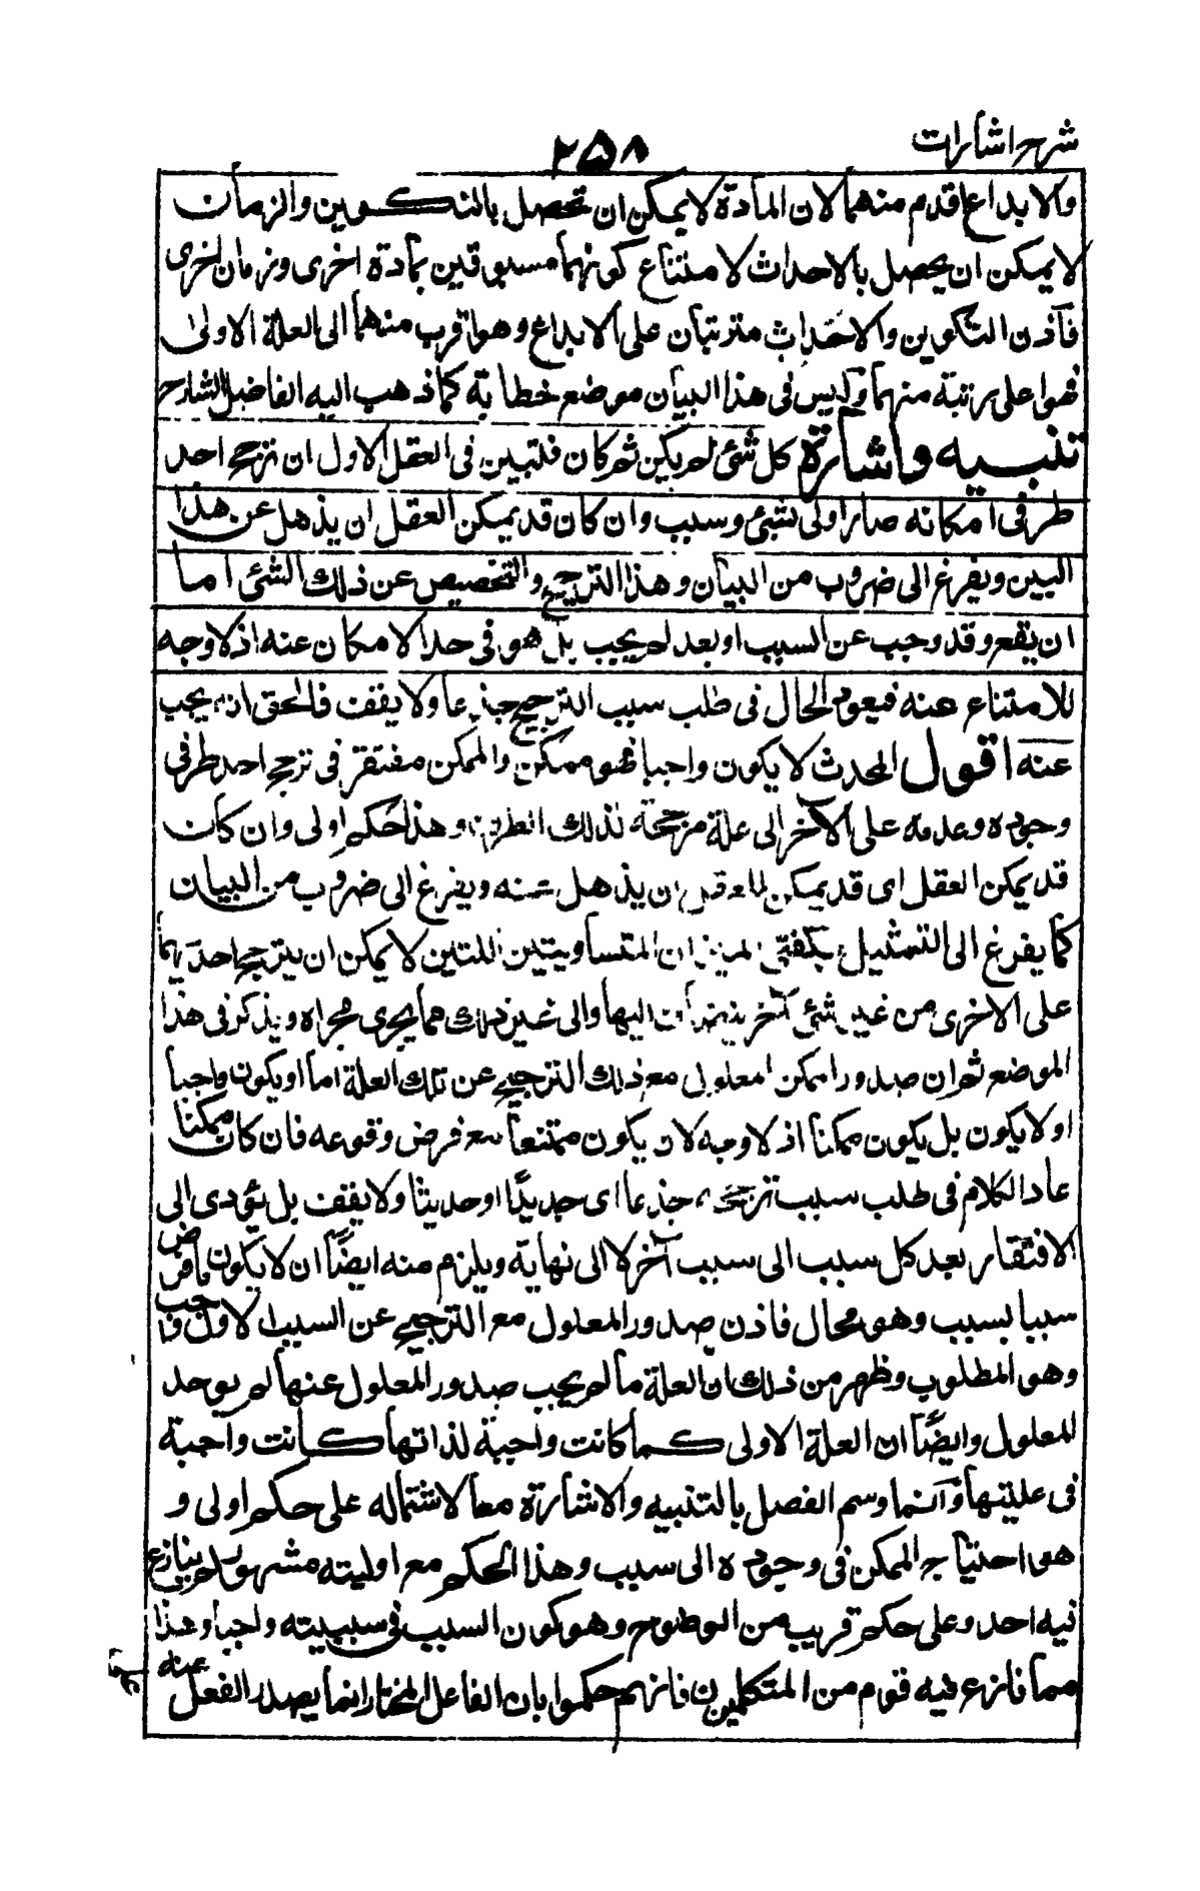 شرح اشارات
٢٥٨
والابداع اقدم منهما لان المادة لا يمكن ان تحصل بالتكوين والزمان
لا يمكن ان يحصل بالاحداث لامتناع كونهما مسبوقين بمادة اخرى وزمان اخرى
فاذن التكوين والاحداث مترتبان على الابداع وهو اقرب منهما الى العلة الاولى
فهو اعلى رتبة منهما وليس فى هذا البيان موضع خطابة كما ذهب اليه الفاضل الشارح
تنبيه واشارة كل شئ لم يكن ثم كان فتبين فى العقل الاول ان ترجح احد
طرفى امكانه صار اولى بشئ وسبب وان كان قد يمكن العقل ان يذهل عن هذا
البين ويفزغ الى ضروب من البيان وهذا الترجيح والتخصيص عن ذلك الشئ اما
ان يقع وقد وجب عن السبب او بعد لم يجب بل هو فى حد الامكان عنه اذ لا وجه
للامتناع عنه فيعود الحال فى طلب سبب الترجيح جذعا ولا يقف فالحق انه يجب
عنه اقول المحدث لا يكون واجبا فهو ممكن والممكن مفتقر فى ترجح احد طرفى
وجوده وعدمه على الآخر الى علة مرجحة لذلك الطرف وهذا حكم اولى وان كان
قد يمكن العقل اى قد يمكن للعقل ان يذهل عنه ويفزغ الى ضروب من البيان
كما يفزغ الى التمثيل بكفتى الميزان المتساويتين اللتين لا يمكن ان يترجح احديهما
على الاخرى من غير شئ آخر ينضاف اليها والى غير ذلك مما يجرى مجراه ويذكر فى هذا
الموضع ثم ان صدور الممكن المعلول مع ذلك الترجيح عن تلك العلة اما ان يكون واجبا
او لا يكون بل يكون ممكنا اذ لا وجه لان يكون ممتنعا مع فرض وقوعه فان كان ممكنا
عاد الكلام فى طلب سبب ترجحه جذعا اى جديدًا او حديثا ولا يقف بل يؤدى الى
الافتقار بعد كل سبب الى سبب آخر لا الى نهاية ويلزم منه ايضًا ان لا يكون ما فرض
سببا بسبب وهو محال فاذن صدور المعلول مع الترجيح عن السبب الاول واجب
وهو المطلوب وظهر من ذلك ان العلة ما لم يجب صدور المعلول عنها لم يوجد
المعلول وايضًا ان العلة الاولى كما كانت واجبة لذاتها كانت واجبة
فى عليتها وانما وسم الفصل بالتنبيه والاشارة معا لاشتماله على حكم اولى و
هو احتياج الممكن فى وجوده الى سبب وهذا الحكم مع اوليته مشهور لم ينازع
فيه احد وعلى حكم قريب من الوضوح وهو كون السبب فى سببيته واجبا وهذا
مما نازع فيه قوم من المتكلمين فانهم حكموا بان الفاعل المختار انما يصدر الفعل عنه